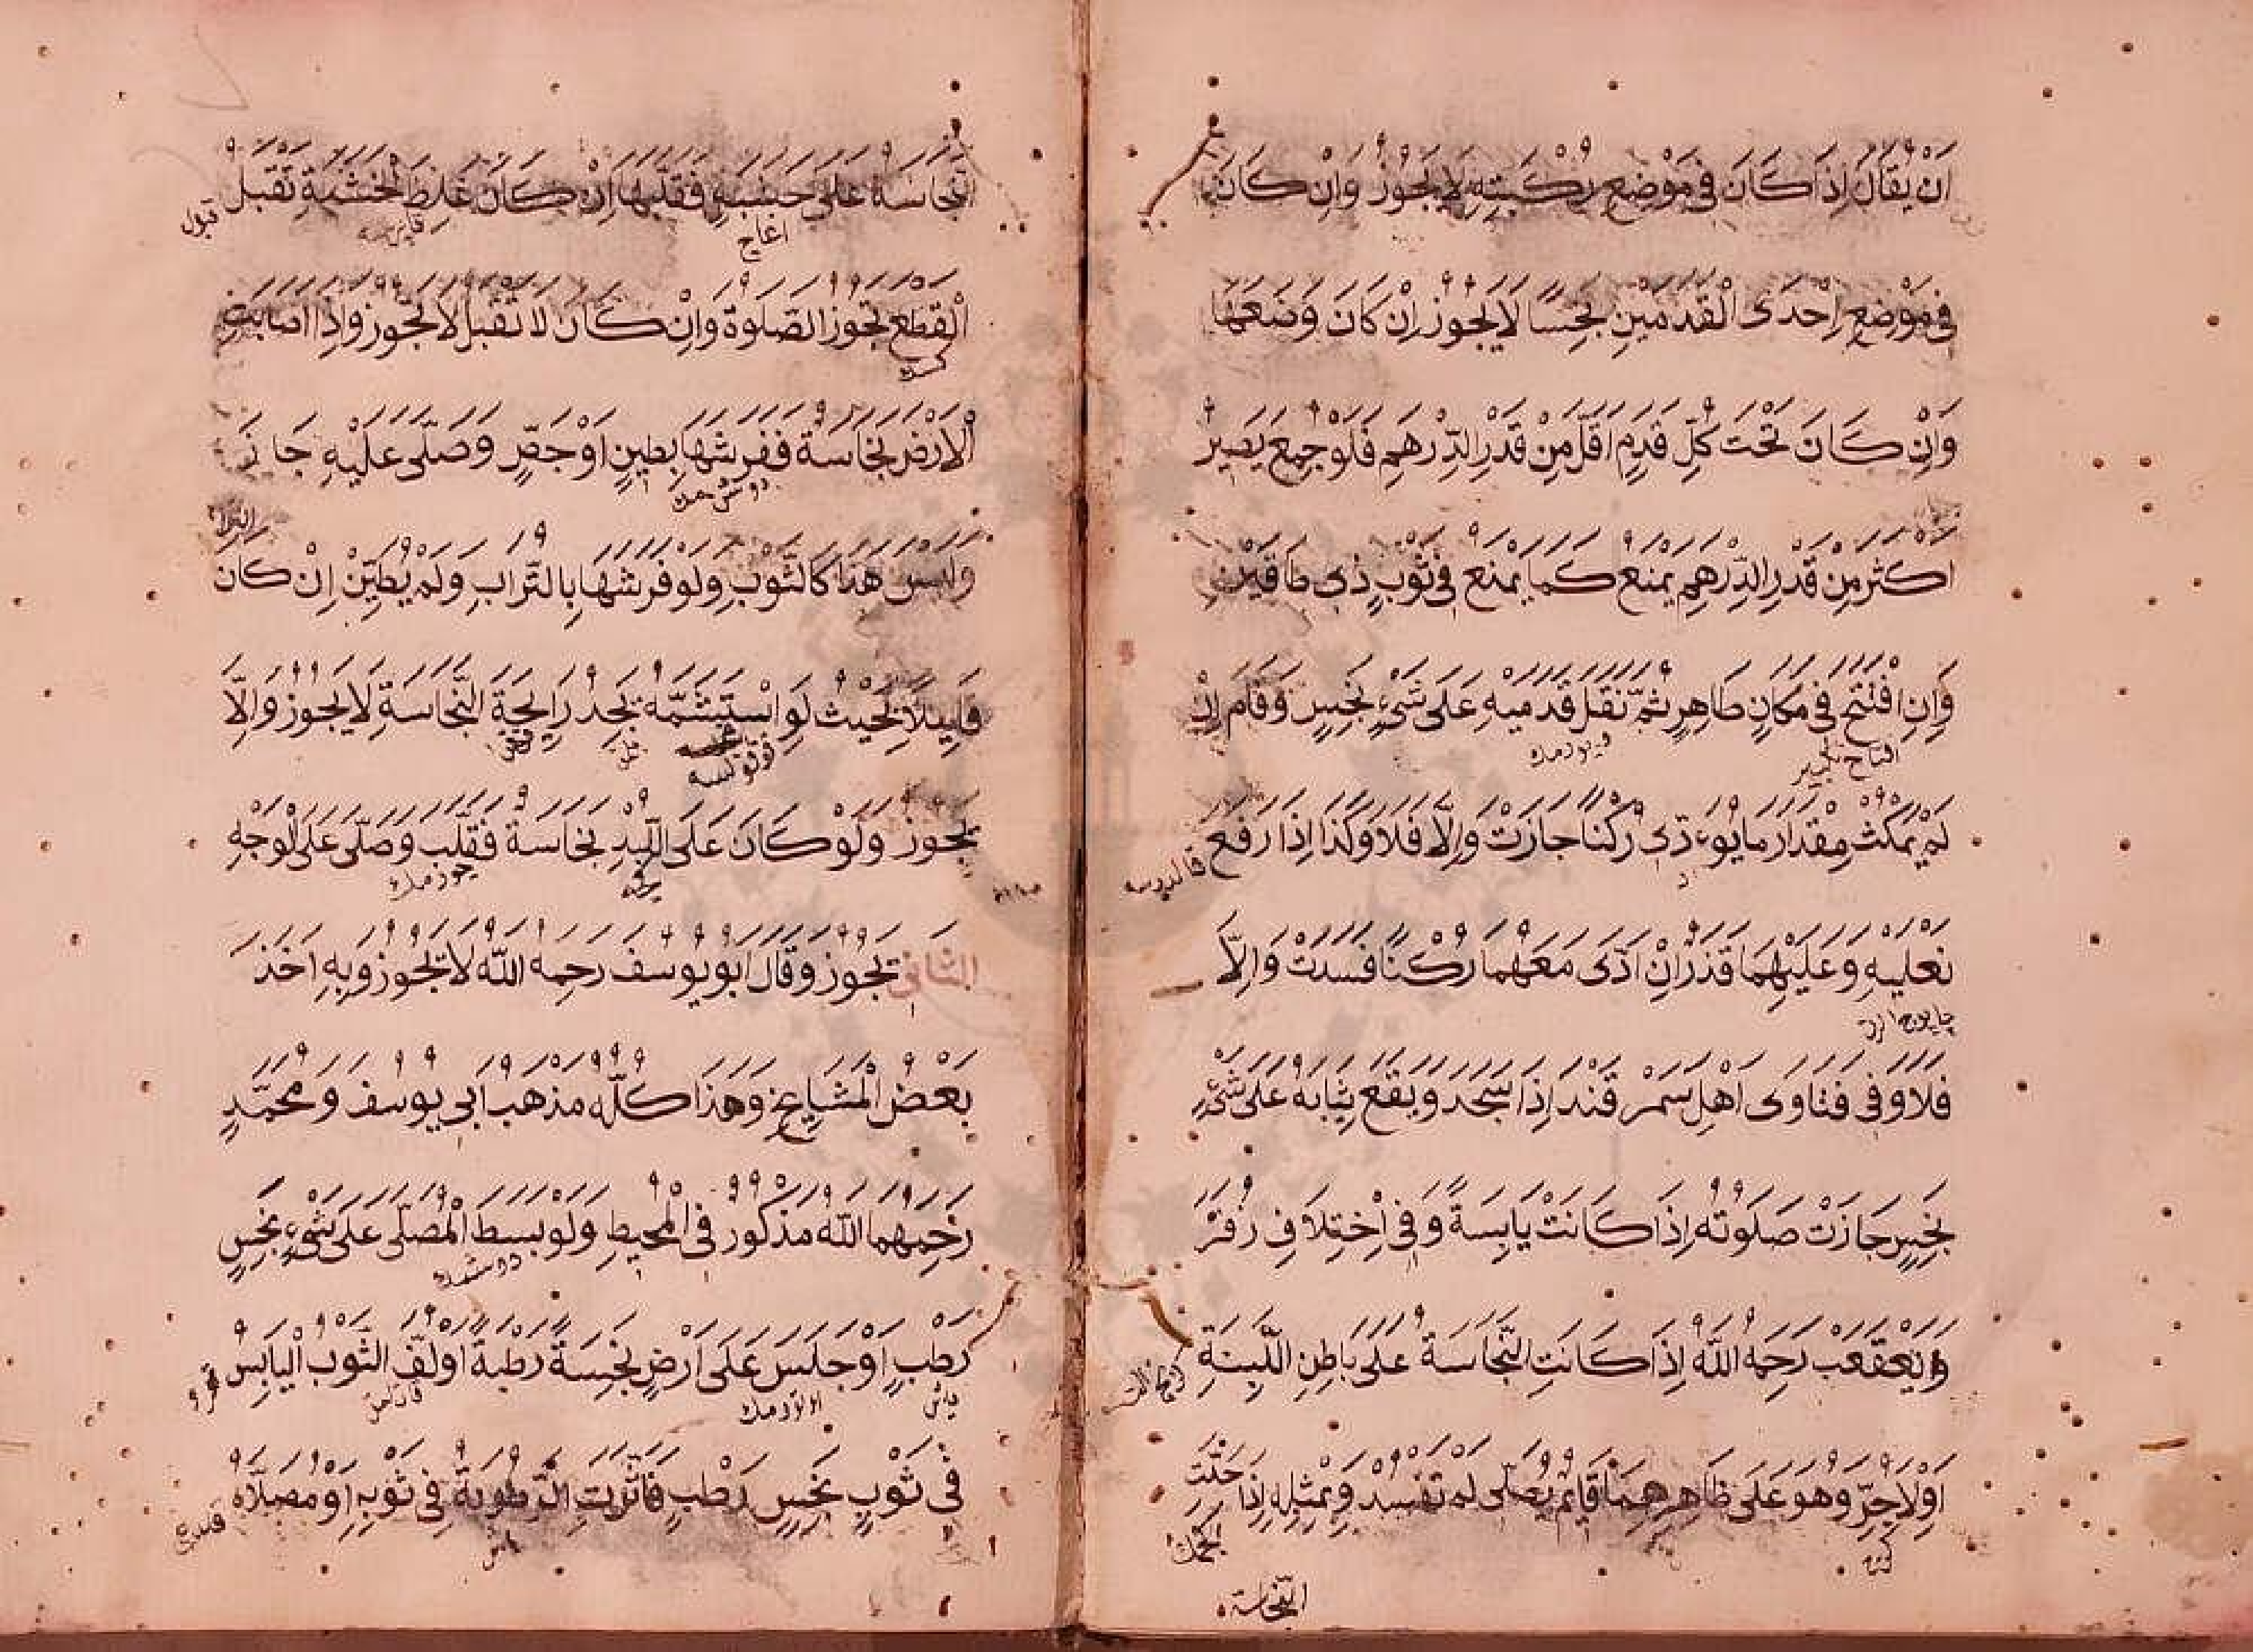 اَنْ يُقَالَ اِذَا كَانَ فِي مَوْضِعِ رُكْبَتِهِ لَا يَجُوزُ وَاِنْ كَانَ
فِي مَوْضِعِ اِحْدَى الْقَدَمَيْنِ نَجِسًا لَا يَجُوزُ اِنْ كَانَ وَضَعَهُمَا
وَاِنْ كَانَ تَحْتَ كُلِّ قَدَمٍ اَقَلَّ مِنْ قَدْرِ الدِّرْهَمِ فَلَوْ جُمِعَ يَصِيرُ
اَكْثَرَ مِنْ قَدْرِ الدِّرْهَمِ يَمْنَعُ كَمَا يَمْنَعُ فِي ثَوْبٍ ذِي طَاقَيْنِ
وَاِنِ افْتَتَحَ فِي مَكَانٍ طَاهِرٍ ثُمَّ نَقَلَ قَدَمَيْهِ عَلَى شَيْءٍ نَجِسٍ وَقَامَ اِنْ
افتتاح تكبير
لَمْ يَمْكُثْ مِقْدَارَ مَا يُوءَدِّى رُكْنًا جَازَتْ وَاِلَّا فَلَا وَكَذَا اِذَا رَفَعَ
قالدرسه
نَعْلَيْهِ وَعَلَيْهِمَا قَذَرٌ اِنْ اَدَّى مَعَهُمَا رُكْنًا فَسَدَتْ وَاِلَّا
فَلَا وَفِي فَتَاوَى اَهْلِ سَمَرْقَنْد اِذَا سَجَدَ وَيَقَعُ ثِيَابُهُ عَلَى شَيْءٍ
نَجِسٍ جَازَتْ صَلَوتُهُ اِذَا كَانَتْ يَابِسَةً وَفِي اِخْتِلَافِ زُفَرْ
وَيَعْقُعَبْ رَحِمَهُ اللّٰهُ اِذَا كَانَتِ النَّجَاسَةُ عَلَى بَاطِنِ اللَّبِنَةِ
اَوِ الْآجُرِّ وَهُوَ عَلَى ظَاهِرِهِمَا قَائِمٌ يُصَلِّى لَمْ تَفْسُدْ وَبِمِثْلِهِ اِذَا حَلَّتِ
النجاسة
نَجَاسَةٌ عَلَى خَشَبَةٍ فَقَلَّبَهَا اِنْ كَانَ غِلَظُ الْخَشَبَةِ تَقْبَلُ
اغاج
قبول
الْقَطْعَ تَجُوزُ الصَّلَوةُ وَاِنْ كَانَ لَا تَقْبَلُ لَا تَجُوزُ وَاِذَا اَصَابَتِ
كسمك
الْاَرْضَ نَجَاسَةٌ فَفَرَشَهَا بِطِينٍ اَوْ جَصٍّ وَصَلَّى عَلَيْهِ جَازَ
دوشمك
وَلَيْسَ هَذَا كَالثَّوْبِ وَلَوْ فَرَشَهَا بِالتُّرَابِ وَلَمْ يُطَيِّنْ اِنْ كَانَ
التراب
قَلِيلًا بِحَيْثُ لَوِ اسْتَشَمَّهُ يَجِدُ رَايِحَةَ النَّجَاسَةِ لَا يَجُوزُ وَاِلَّا
قوقولسه
يَجُوزُ وَلَوْ كَانَ عَلَى اللِّبْدِ نَجَاسَةٌ فَقَلَّبَ وَصَلَّى عَلَى الْوَجْهِ
چورمك
الثَّانِي تَجُوزُ وَقَالَ اَبُو يُوسُفَ رَحِمَهُ اللّٰهُ لَا تَجُوزُ وَبِهِ اَخَذَ
بَعْضُ الْمَشَايِخِ وَهَذَا كُلُّهُ مَذْهَبُ اَبِي يُوسُفَ وَمُحَمَّدٍ
رَحِمَهُمَا اللّٰهُ مَذْكُورٌ فِي الْمُحِيطِ وَلَوْ بَسَطَ الْمُصَلَّى عَلَى شَيْءٍ نَجِسٍ
دوشمك
رَطْبٍ اَوْ جَلَسَ عَلَى اَرْضٍ نَجِسَةٍ رَطْبَةٍ اَوْ لَفَّ الثَّوْبَ الْيَابِسَ
ياش
اوتورمك
قرو
فِي ثَوْبٍ نَجِسٍ رَطْبٍ فَاَثَّرَتِ الرُّطُوبَةُ فِي ثَوْبِهِ اَوْ مُصَلَّاهُ
ياش